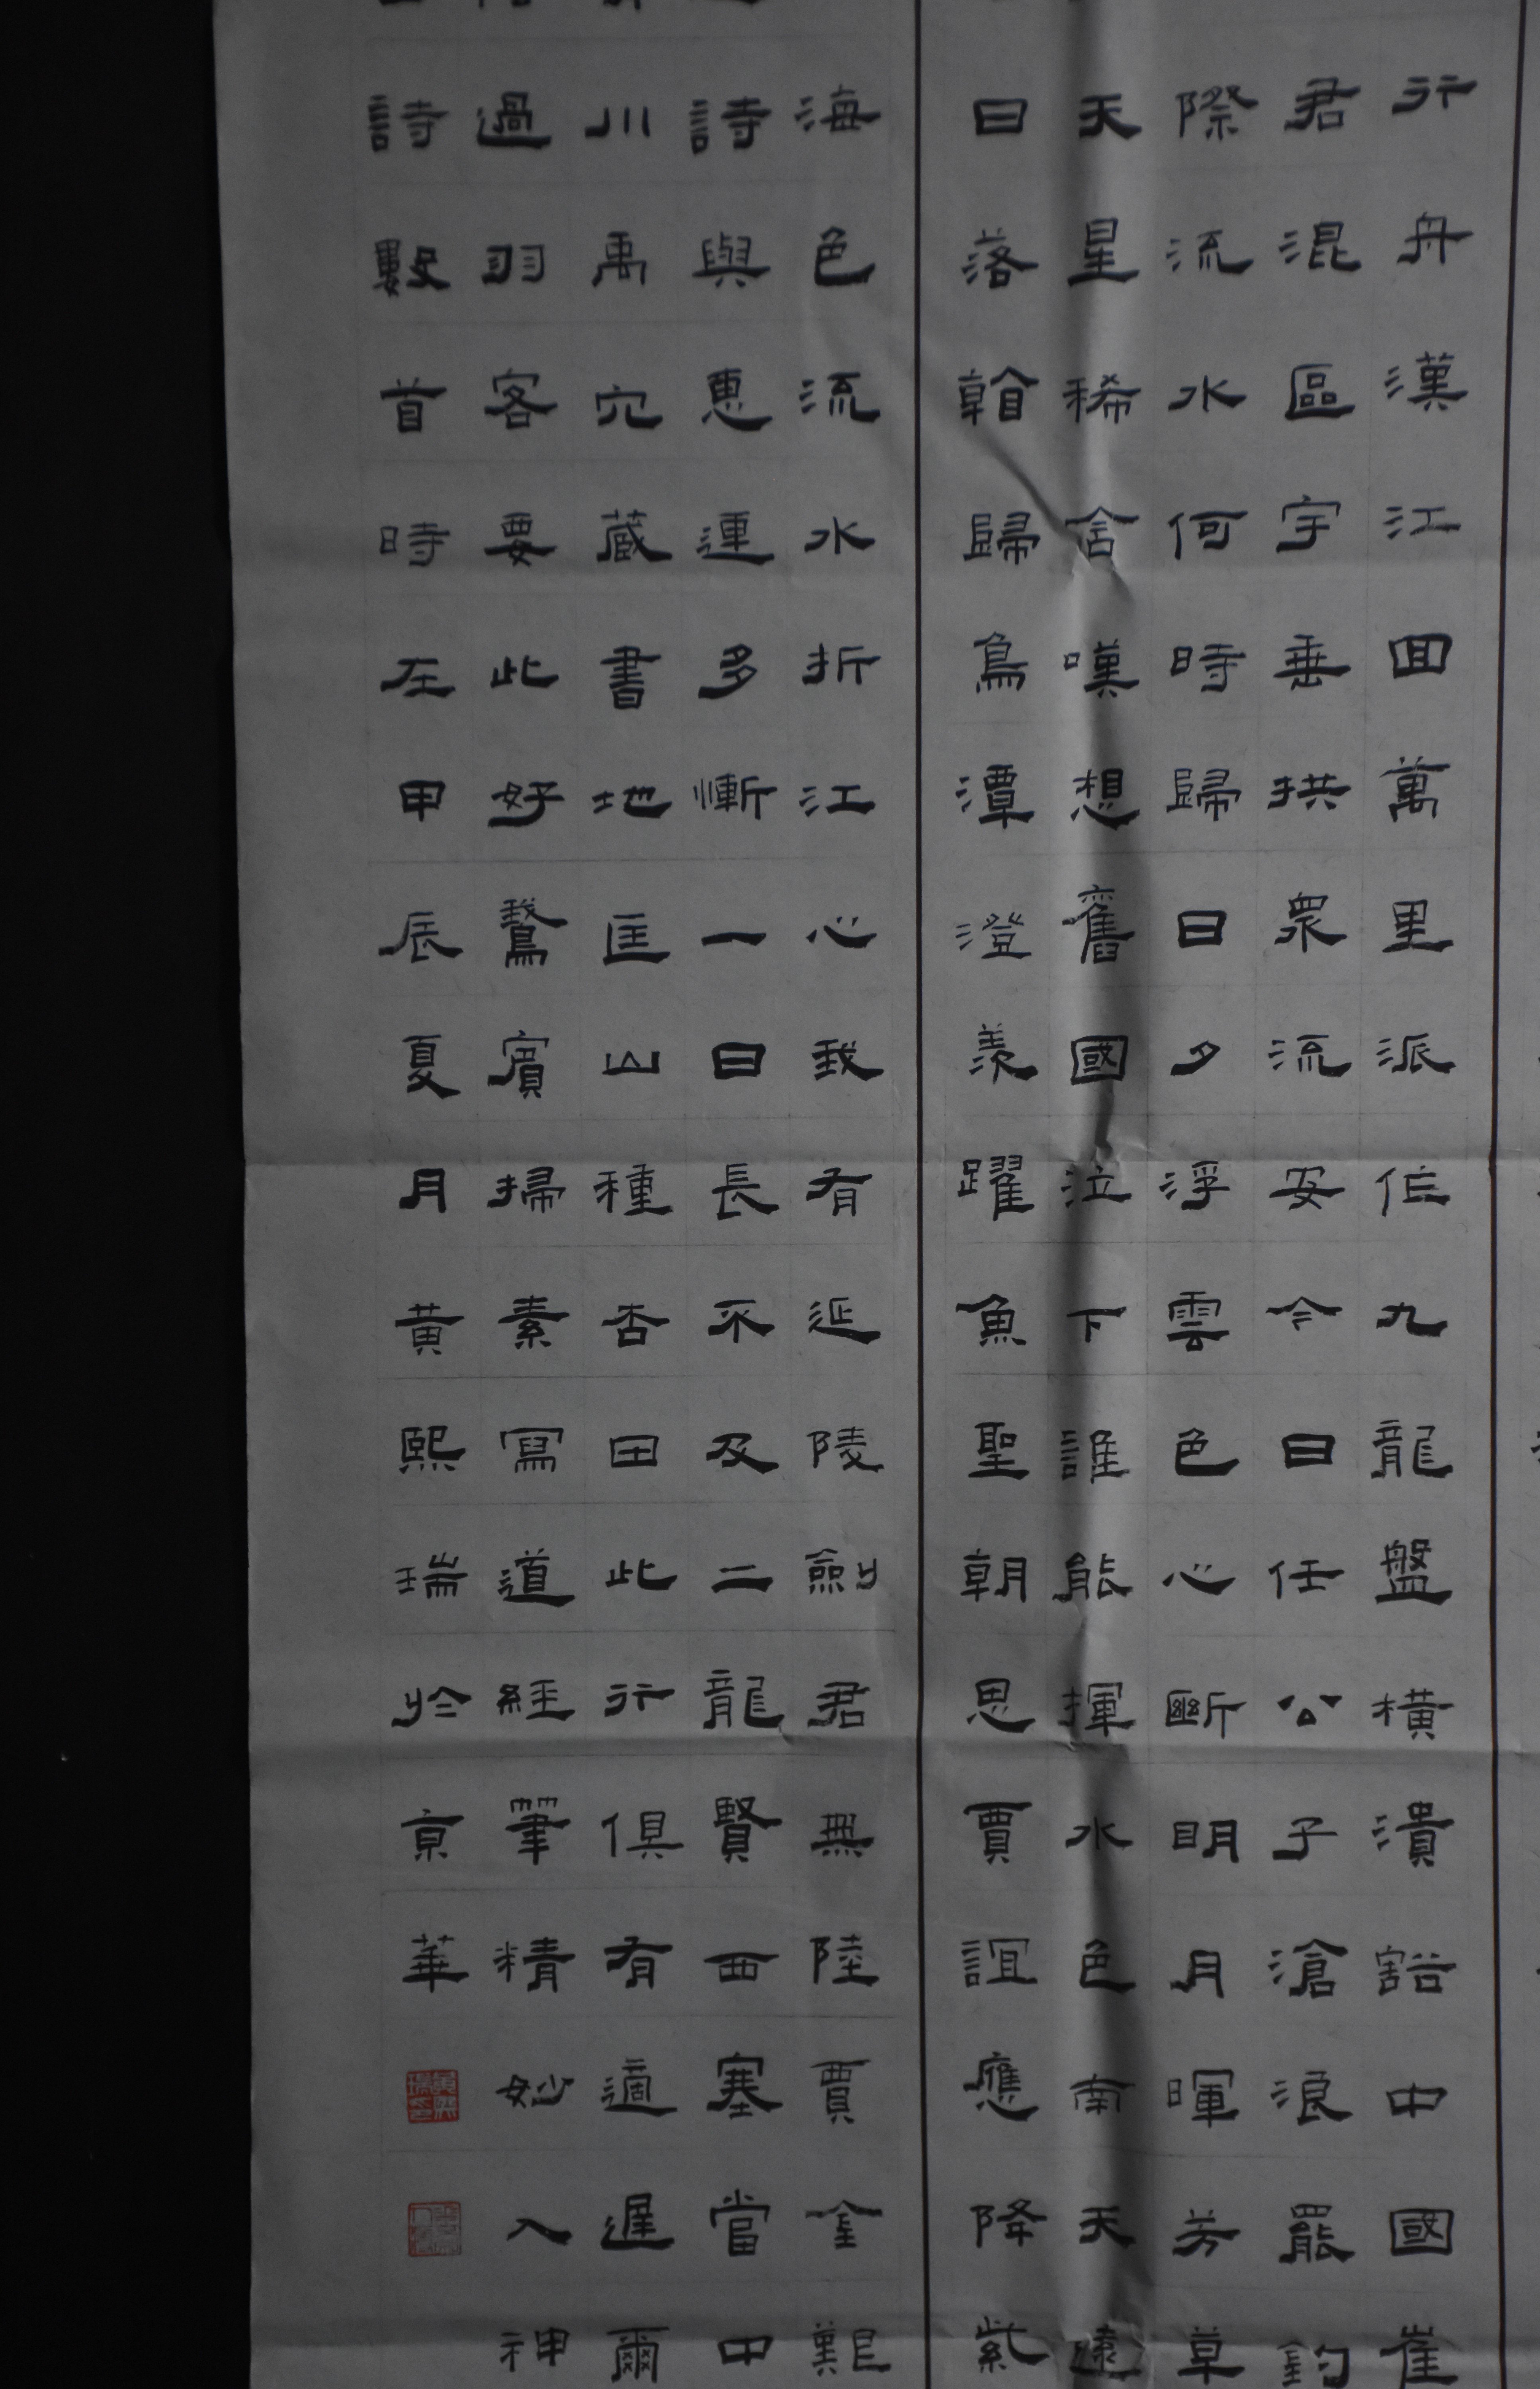 行舟漢江回萬里派作九龍盤橫潰豁中國崔
君混區宇垂拱衆流安今日任公子滄浪罷釣
際流水何時歸日夕浮雲色心斷明月暉芳草
天星稀舍嘆想舊國泣下誰能揮水色南天遠
日落翰歸鳥潭澄羨躍魚聖朝思賈誼應降紫
海色流水折江心我有延陵劍君無陸賈金艱
詩與惠連多慚一日長不及二龍賢西塞當中
川禹穴藏書地匡山種杏田此行俱有適遲爾
過羽客要此好鵞賓掃素寫道經筆精妙入神
詩數首時在甲辰夏月黄熙瑞於京華